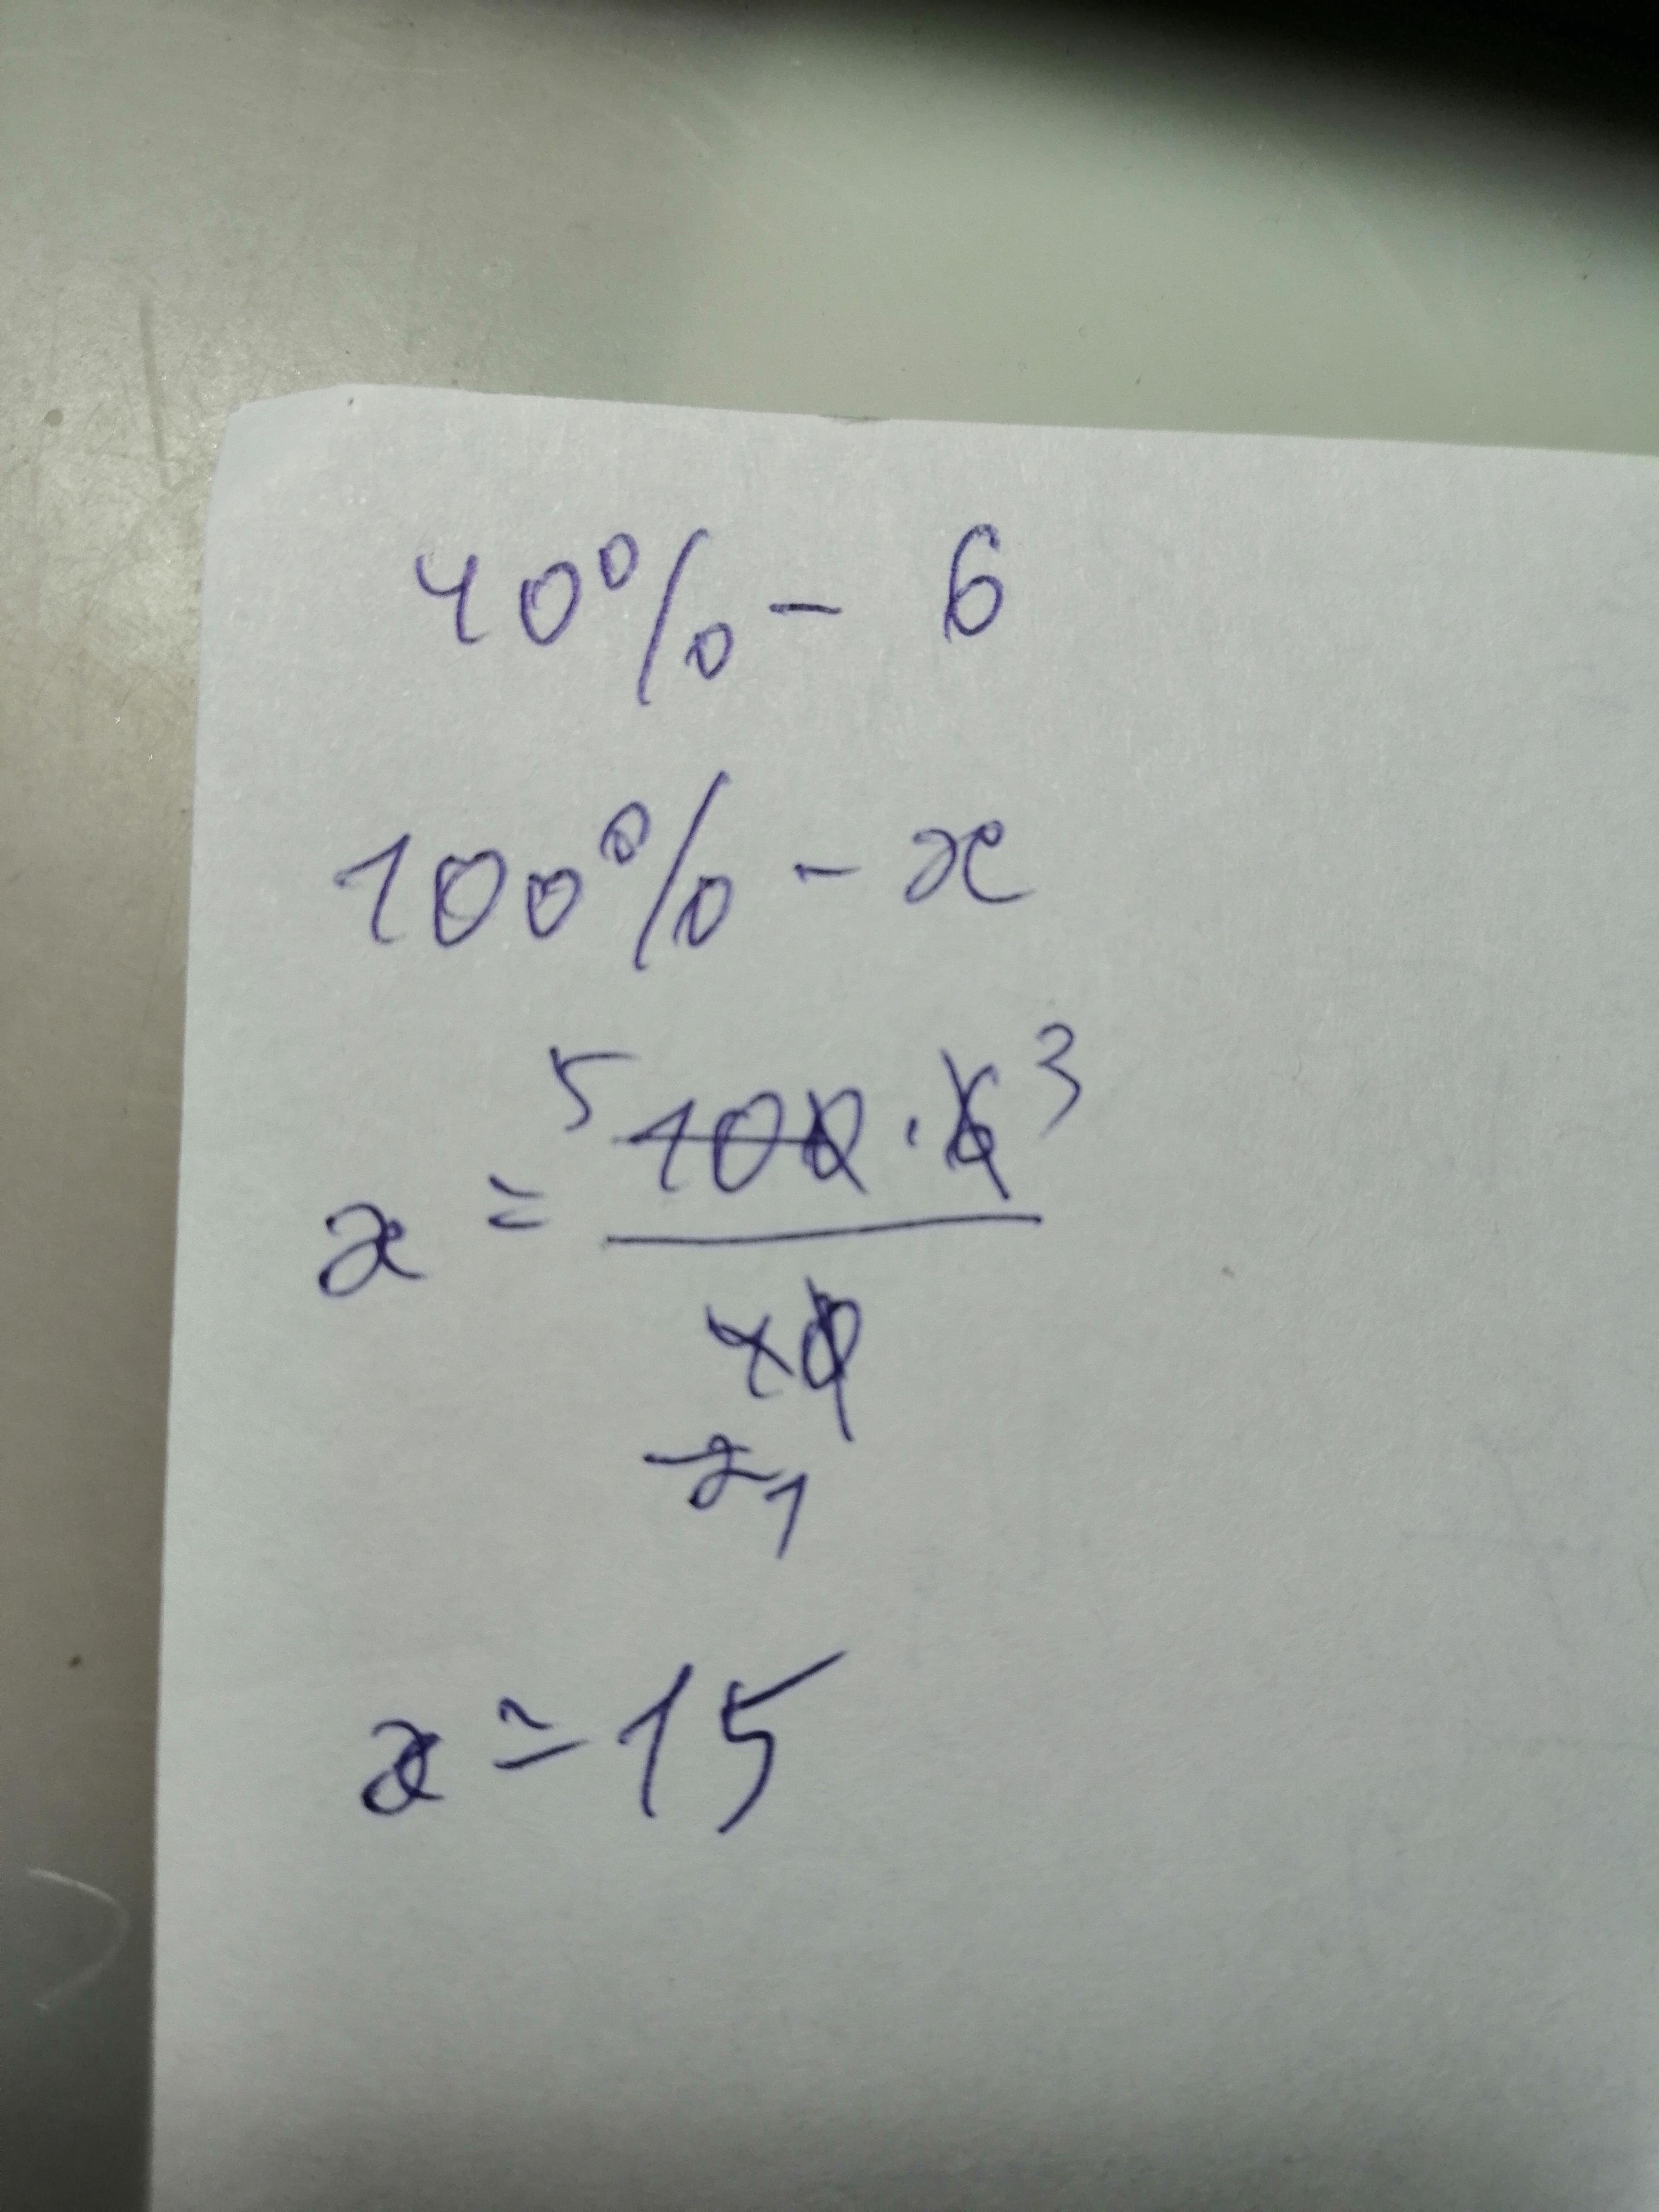 40% - 6
100% - x
x = 5 100 · 6 3
40
2 1
x = 15